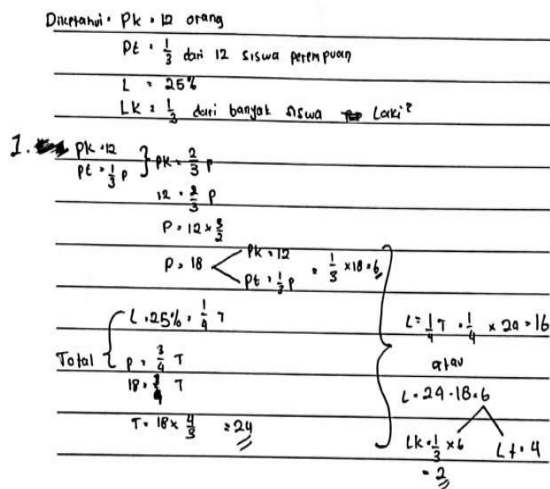 Diketahui: Pk = 12 orang
Pt = 1/3 dari 12 siswa perempuan
L = 25%
Lk = 1/3 dari banyak siswa Laki²
1. Pk = 12
Pt = 1/3 P } Pk = 2/3 P
12 = 2/3 P
P = 12 × 3/2
P = 18 < Pk = 12
Pt = 1/3 P = 1/3 × 18 = 6
Total { L = 25% = 1/4 T
P = 3/4 T
18 = 3/4 T
T = 18 × 4/3 = 24
L = 1/4 T = 1/4 × 24 = 16
atau
L = 24 - 18 = 6
Lk = 1/3 × 6
= 2
Lt = 4